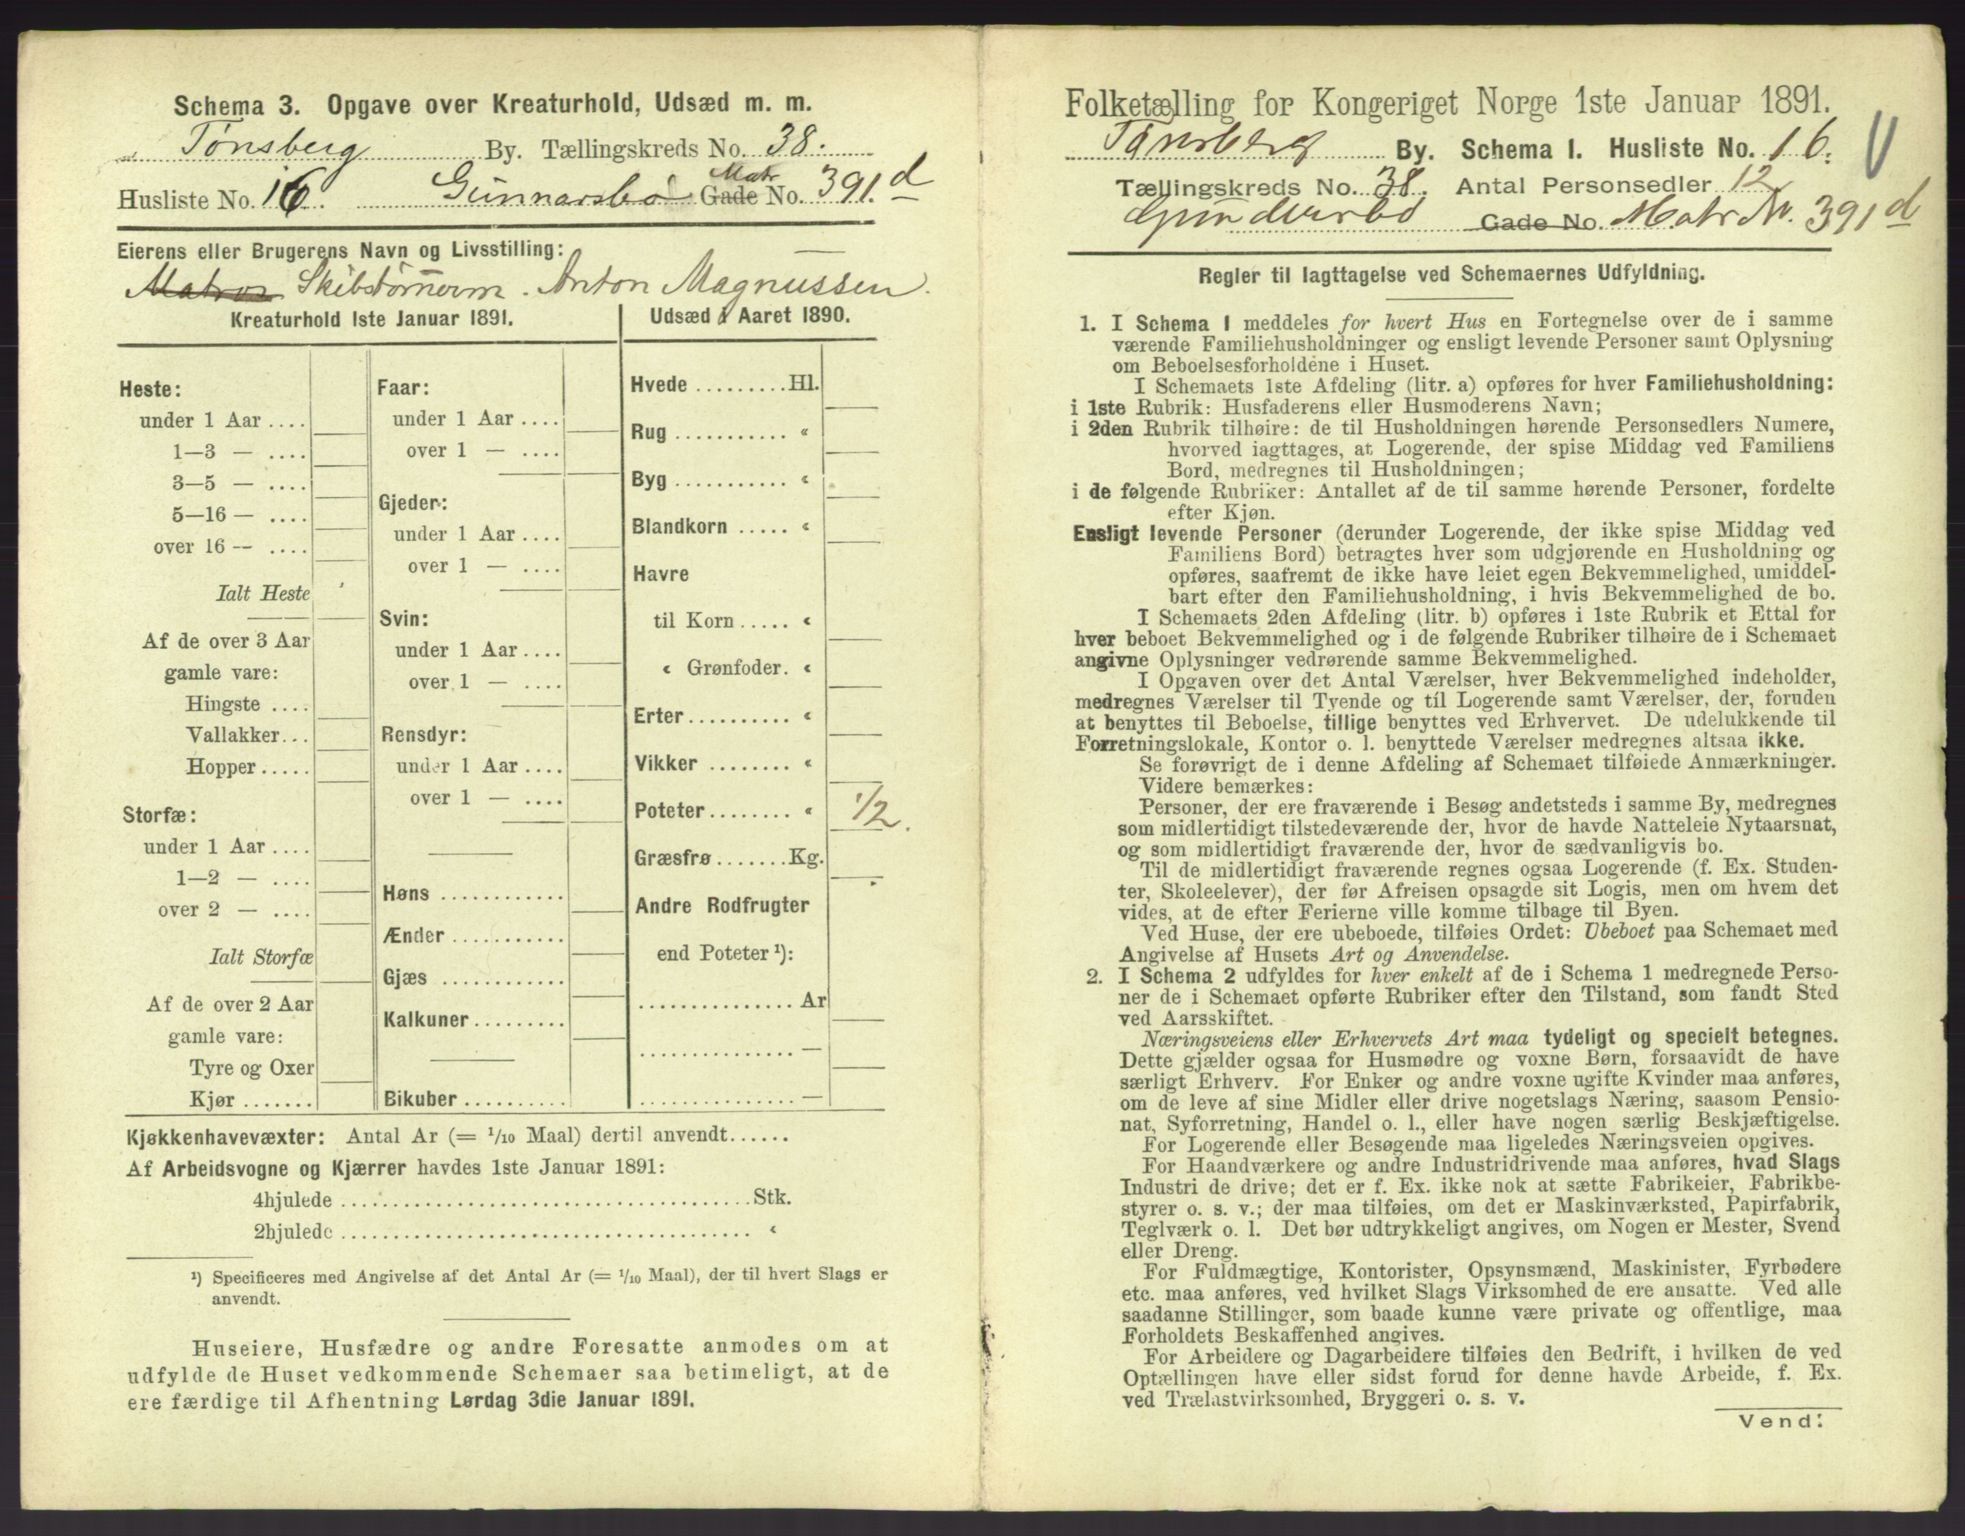 Schema 3. Opgave over Kreaturhold, Udsæd m. m.
Tønsberg By. Tællingskreds No. 38.
Husliste No. 16. Gunnarsbø Gade Matr No. 391.d
Eierens eller Brugerens Navn og Livsstilling:
Matros Skibstømerm. Anton Magnussen.
Kreaturhold 1ste Januar 1891.
Heste:
under 1 Aar ....
1—3 — ....
3—5 — ....
5—16 — ....
over 16 — ....
Ialt Heste
Af de over 3 Aar
gamle vare:
Hingste ....
Vallakker...
Hopper.....
Storfæ:
under 1 Aar ....
1—2 — ....
over 2 — ....
Ialt Storfæ
Af de over 2 Aar
gamle vare:
Tyre og Oxer
Kjør .......
Faar:
under 1 Aar ....
over 1 — ....
Gjeder:
under 1 Aar ....
over 1 — ....
Svin:
under 1 Aar ....
over 1 — ....
Rensdyr:
under 1 Aar ....
over 1 — ....
Høns ............
Ænder...........
Gjæs ............
Kalkuner.........
Bikuber ..........
Udsæd i Aaret 1890.
Hvede .........Hl.
Rug ........... «
Byg ........... «
Blandkorn ..... «
Havre
til Korn ..... «
« Grønfoder. «
Erter.......... «
Vikker ........ «
Poteter........ « 1/2.
Græsfrø.......Kg.
Andre Rodfrugter
end Poteter ¹):
............... Ar
............... —
............... —
Kjøkkenhavevæxter: Antal Ar (= 1/10 Maal) dertil anvendt......
Af Arbeidsvogne og Kjærrer havdes 1ste Januar 1891:
4hjulede ........................................Stk.
2hjulede ........................................ «
¹) Specificeres med Angivelse af det Antal Ar (= 1/10 Maal), der til hvert Slags er
anvendt.
Huseiere, Husfædre og andre Foresatte anmodes om at
udfylde de Huset vedkommende Schemaer saa betimeligt, at de
ere færdige til Afhentning Lørdag 3die Januar 1891.
Folketælling for Kongeriget Norge 1ste Januar 1891.
Tønsberg By. Schema I. Husliste No. 16.
Tællingskreds No. 38. Antal Personsedler 12
Gundersbø Gade No. Matr N. 391d
Regler til Iagttagelse ved Schemaernes Udfyldning.
1. I Schema 1 meddeles for hvert Hus en Fortegnelse over de i samme
værende Familiehusholdninger og ensligt levende Personer samt Oplysning
om Beboelsesforholdene i Huset.
I Schemaets 1ste Afdeling (litr. a) opføres for hver Familiehusholdning:
i 1ste Rubrik: Husfaderens eller Husmoderens Navn;
i 2den Rubrik tilhøire: de til Husholdningen hørende Personsedlers Numere,
hvorved iagttages, at Logerende, der spise Middag ved Familiens
Bord, medregnes til Husholdningen;
i de følgende Rubriker: Antallet af de til samme hørende Personer, fordelte
efter Kjøn.
Ensligt levende Personer (derunder Logerende, der ikke spise Middag ved
Familiens Bord) betragtes hver som udgjørende en Husholdning og
opføres, saafremt de ikke have leiet egen Bekvemmelighed, umiddel-
bart efter den Familiehusholdning, i hvis Bekvemmelighed de bo.
I Schemaets 2den Afdeling (litr. b) opføres i 1ste Rubrik et Ettal for
hver beboet Bekvemmelighed og i de følgende Rubriker tilhøire de i Schemaet
angivne Oplysninger vedrørende samme Bekvemmelighed.
I Opgaven over det Antal Værelser, hver Bekvemmelighed indeholder,
medregnes Værelser til Tyende og til Logerende samt Værelser, der, foruden
at benyttes til Beboelse, tillige benyttes ved Erhvervet. De udelukkende til
Forretningslokale, Kontor o. l. benyttede Værelser medregnes altsaa ikke.
Se forøvrigt de i denne Afdeling af Schemaet tilføiede Anmærkninger.
Videre bemærkes:
Personer, der ere fraværende i Besøg andetsteds i samme By, medregnes
som midlertidigt tilstedeværende der, hvor de havde Natteleie Nytaarsnat,
og som midlertidigt fraværende der, hvor de sædvanligvis bo.
Til de midlertidigt fraværende regnes ogsaa Logerende (f. Ex. Studen-
ter, Skoleelever), der før Afreisen opsagde sit Logis, men om hvem det
vides, at de efter Ferierne ville komme tilbage til Byen.
Ved Huse, der ere ubeboede, tilføies Ordet: Ubeboet paa Schemaet med
Angivelse af Husets Art og Anvendelse.
2. I Schema 2 udfyldes for hver enkelt af de i Schema 1 medregnede Perso-
ner de i Schemaet opførte Rubriker efter den Tilstand, som fandt Sted
ved Aarsskiftet.
Næringsveiens eller Erhvervets Art maa tydeligt og specielt betegnes.
Dette gjælder ogsaa for Husmødre og voxne Børn, forsaavidt de have
særligt Erhverv. For Enker og andre voxne ugifte Kvinder maa anføres,
om de leve af sine Midler eller drive nogetslags Næring, saasom Pensio-
nat, Syforretning, Handel o. l., eller have nogen særlig Beskjæftigelse.
For Logerende eller Besøgende maa ligeledes Næringsveien opgives.
For Haandværkere og andre Industridrivende maa anføres, hvad Slags
Industri de drive; det er f. Ex. ikke nok at sætte Fabrikeier, Fabrikbe-
styrer o. s. v.; der maa tilføies, om det er Maskinværksted, Papirfabrik,
Teglværk o. l. Det bør udtrykkeligt angives, om Nogen er Mester, Svend
eller Dreng.
For Fuldmægtige, Kontorister, Opsynsmænd, Maskinister, Fyrbødere
etc. maa anføres, ved hvilket Slags Virksomhed de ere ansatte. Ved alle
saadanne Stillinger, som baade kunne være private og offentlige, maa
Forholdets Beskaffenhed angives.
For Arbeidere og Dagarbeidere tilføies den Bedrift, i hvilken de ved
Optællingen have eller sidst forud for denne havde Arbeide, f. Ex.
ved Trælastvirksomhed, Bryggeri o. s. v.
Vend: